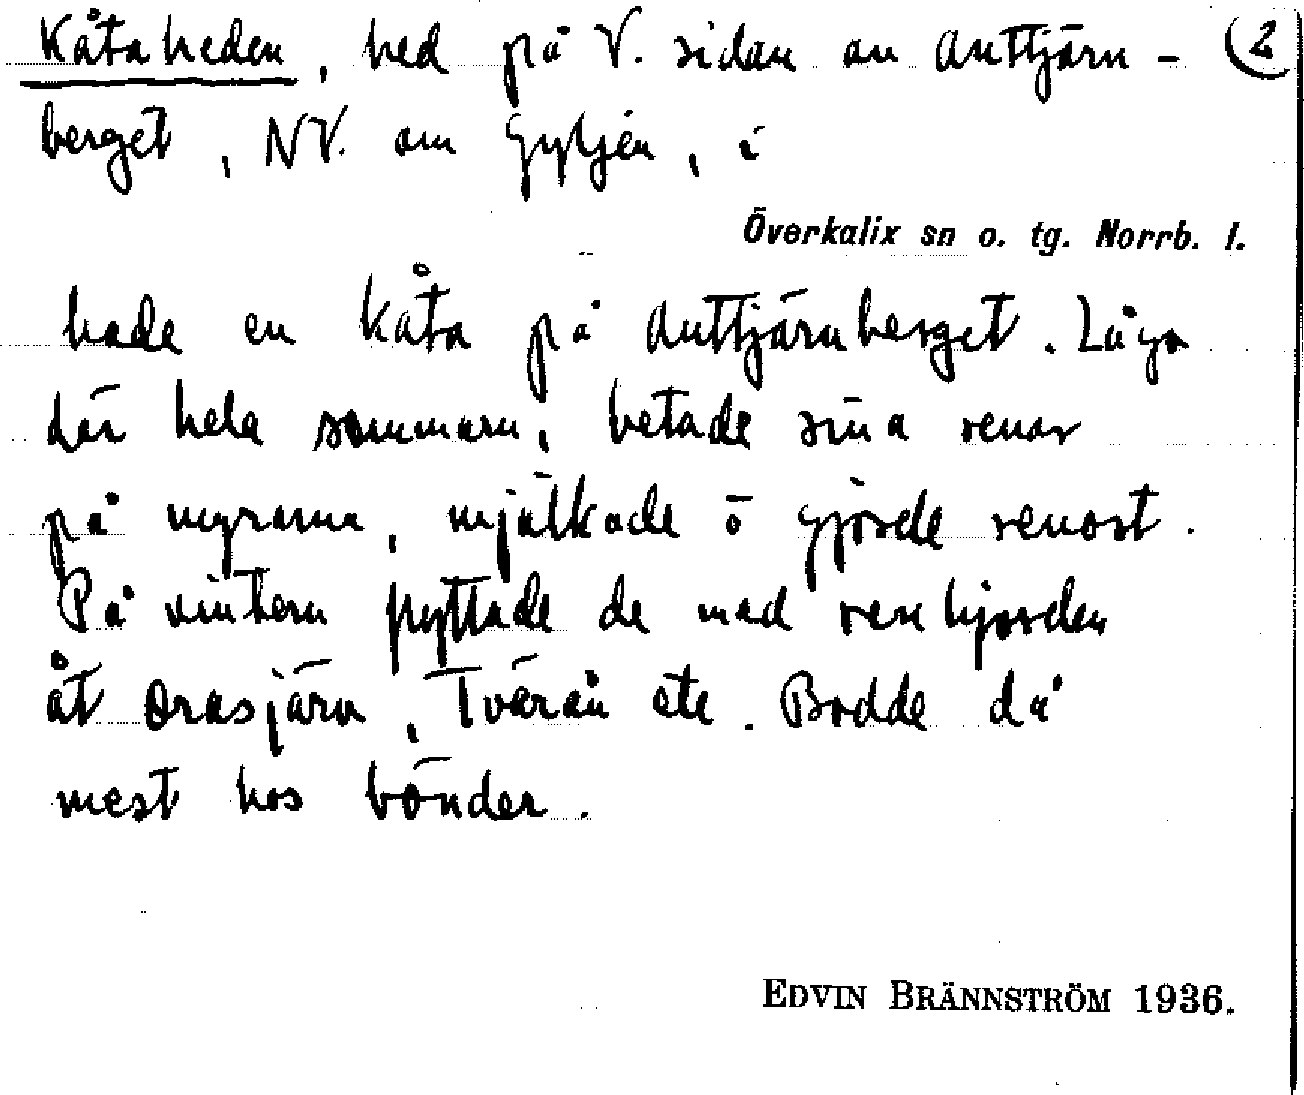 Kåtaheden, hed på V. sidan av Anttjärn- (2
berget, NV. om Gyljen, i
Överkalix sn o. tg. Norrb. l.
hade en kåta på Anttjärnberget. Låga
där hela sommarn, betade sina renar
på myrarna, mjölkade ō gjorde renost.
På vintern flyttade de med renhjorden
åt Orasjärv, Tvärån etc. Bodde då
mest hos bönder.
EDVIN BRÄNNSTRÖM 1936.